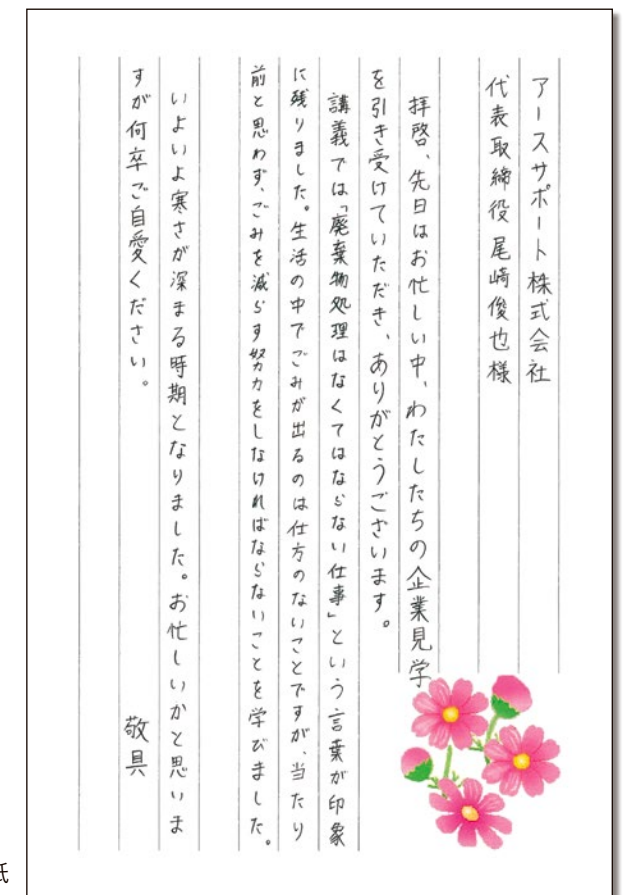 アースサポート株式会社
代表取締役 尾崎俊也様
拝啓、先日はお忙しい中、わたしたちの企業見学
を引き受けていただき、ありがとうございます。
講義では「廃棄物処理はなくてはならない仕事」という言葉が印象
に残りました。生活の中でごみが出るのは仕方のないことですが、当たり
前と思わず、ごみを減らす努力をしなければならないことを学びました。
いよいよ寒さが深まる時期となりました。お忙しいかと思いま
すが何卒ご自愛ください。 敬具
紙